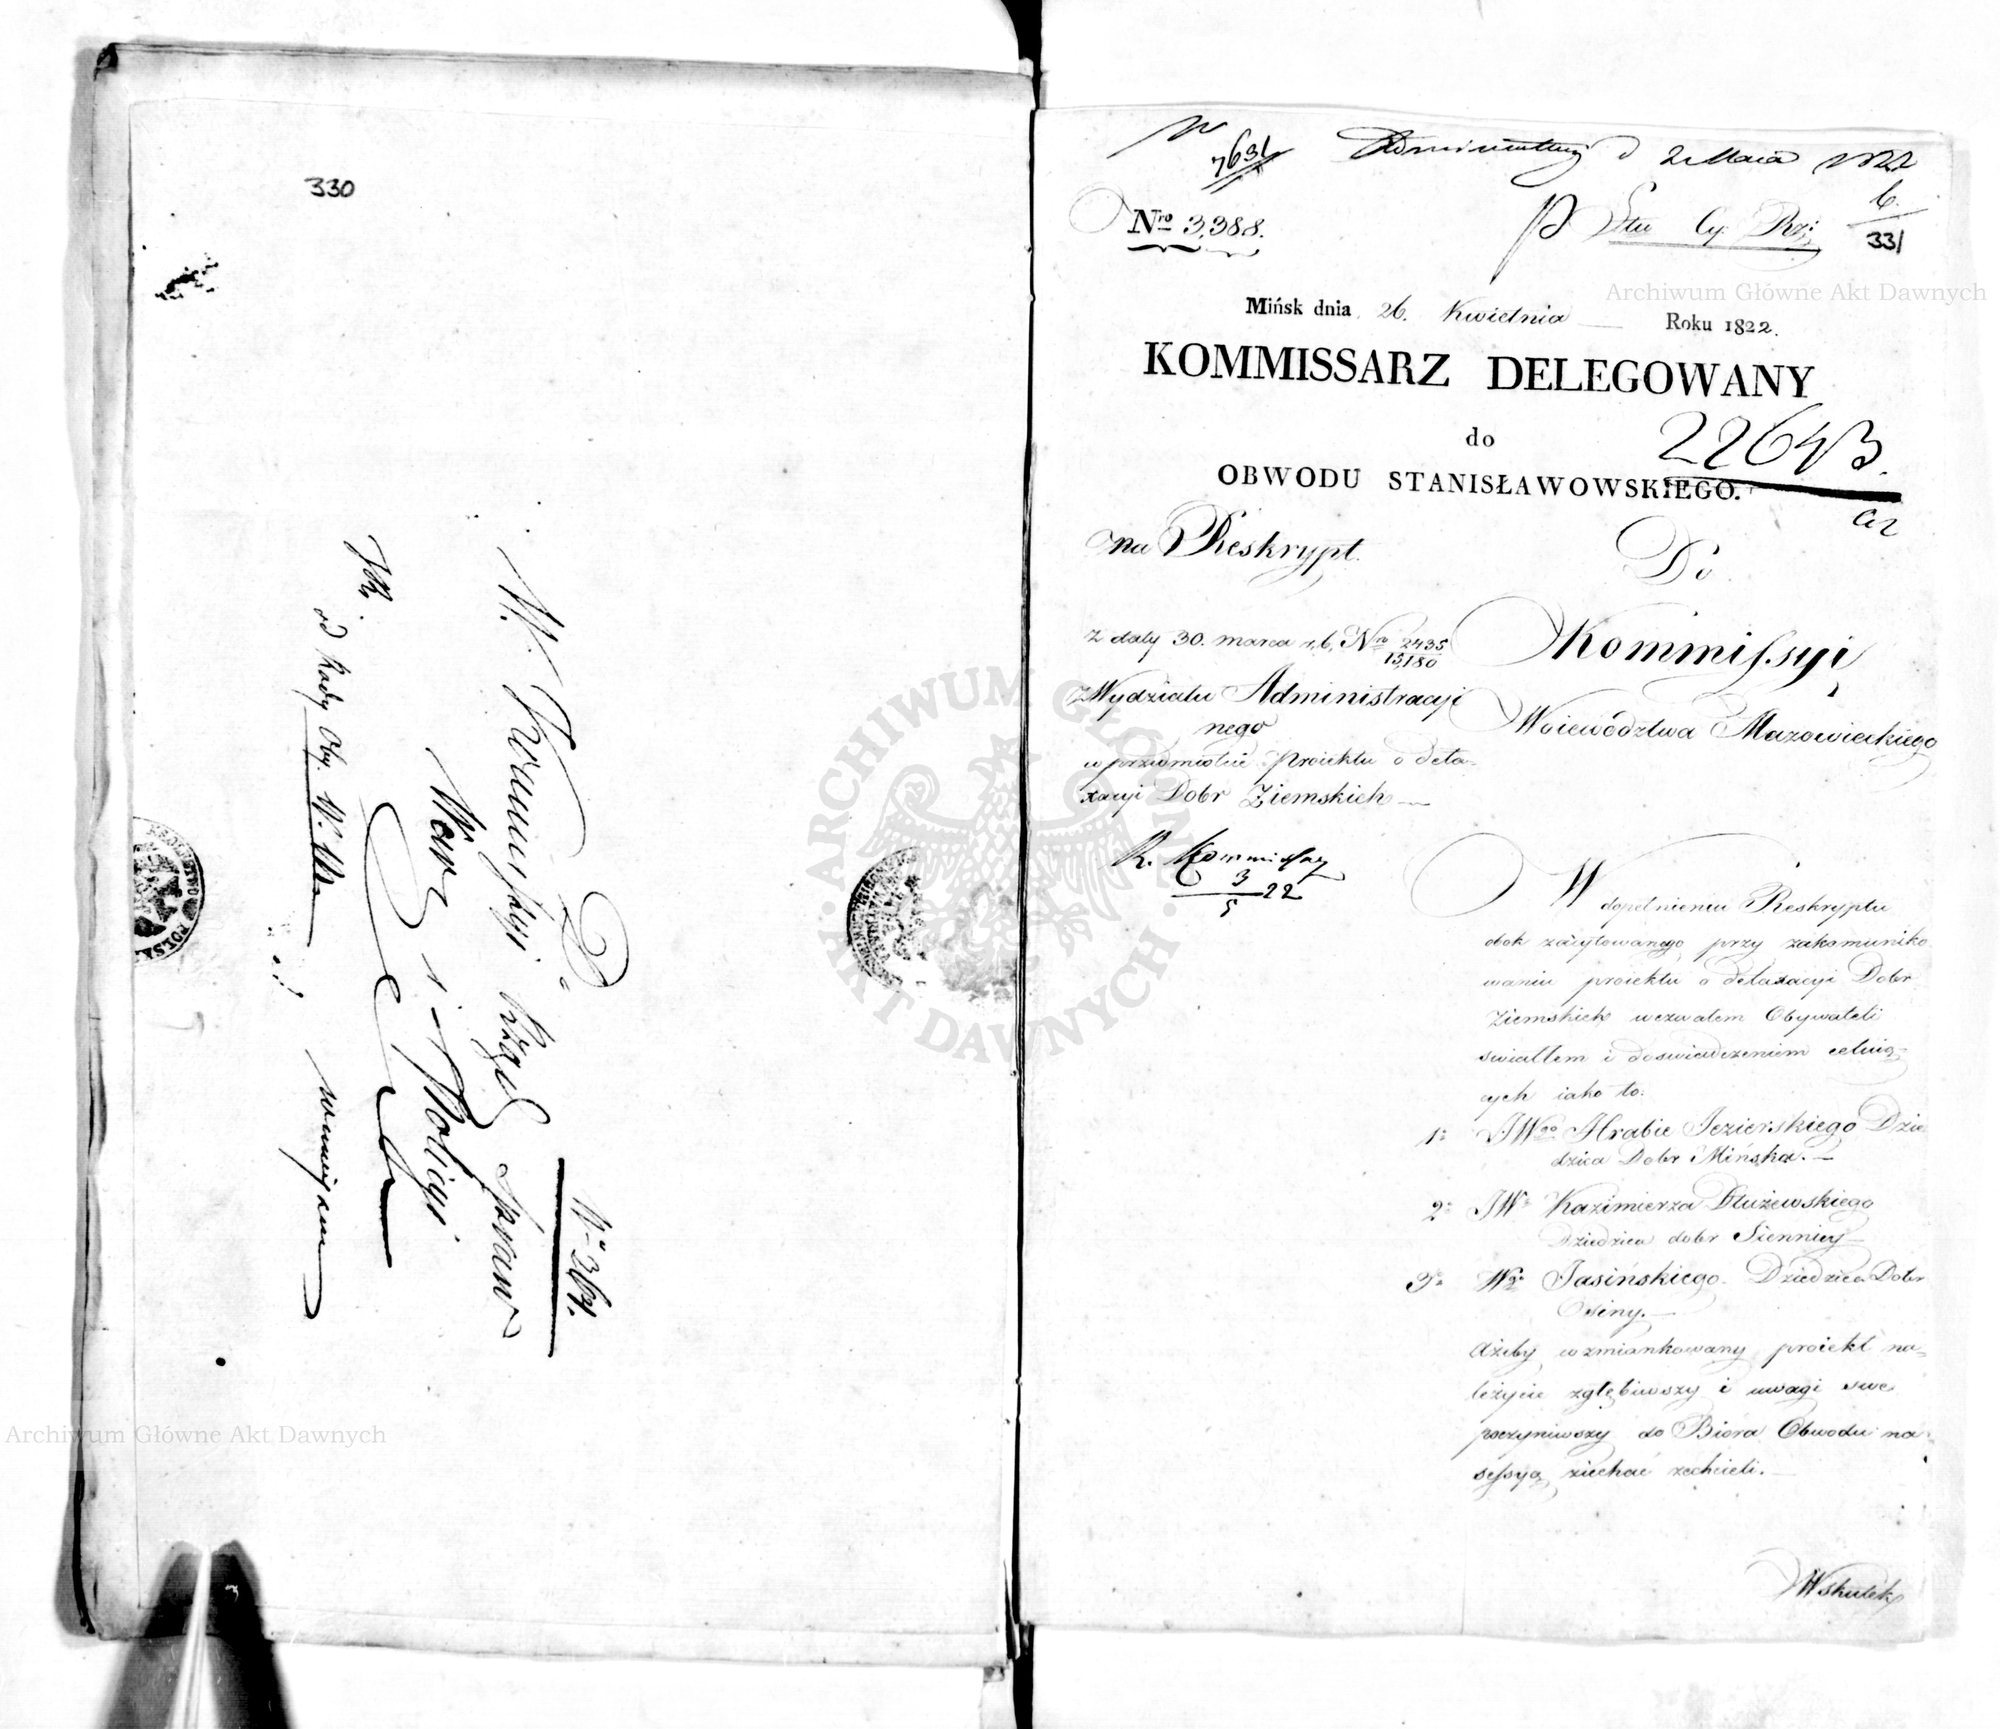 330
Do
Kommissyi Rząd. Spraw
Wew. i Policyi
No 364.
od Rady Oby. W. M.
7631
2 Maja 1822
Nro 3,388.
6.
331
Mińsk dnia 26. Kwietnia Roku 1822.
KOMMISSARZ DELEGOWANY
do
22643.
OBWODU STANISŁAWOWSKIEGO.
na Reskrypt.
z daty 30. marca r. b. Nro 2435
15180
z Wydziału Administracyi
nego
w przedmiotie Proiektu o deta-
xacyi Dobr Ziemskich
R. Kommissarz
3
5 22
Do
Kommissyi
Woiewództwa Mazowieckiego
W dopełnieniu Reskryptu
obok zacytowanego przy zakomuniko
waniu proiektu o detaxacyi Dobr
Ziemskich wezwałem Obywateli
swiatłem i doswiadczeniem celuią-
cych iako to:
1o JWgo Hrabie Jezierskiego Dzie
dzica Dobr Mińska.
2o JWo Kazimierza Dłużewskiego
Dziedzica dobr Siennicy
3o Wgo Jasińskiego Dziedzica Dobr
Osiny.
Ażeby wzmiankowany proiekt na-
leżycie zgłębiwszy i uwagi swe
poczyniwszy do Biora Obwodu na
sessyą ziechać zechcieli.
Wskutek
Archiwum Główne Akt Dawnych
Archiwum Główne Akt Dawnych
ARCHIWUM GŁÓWNE AKT DAWNYCH